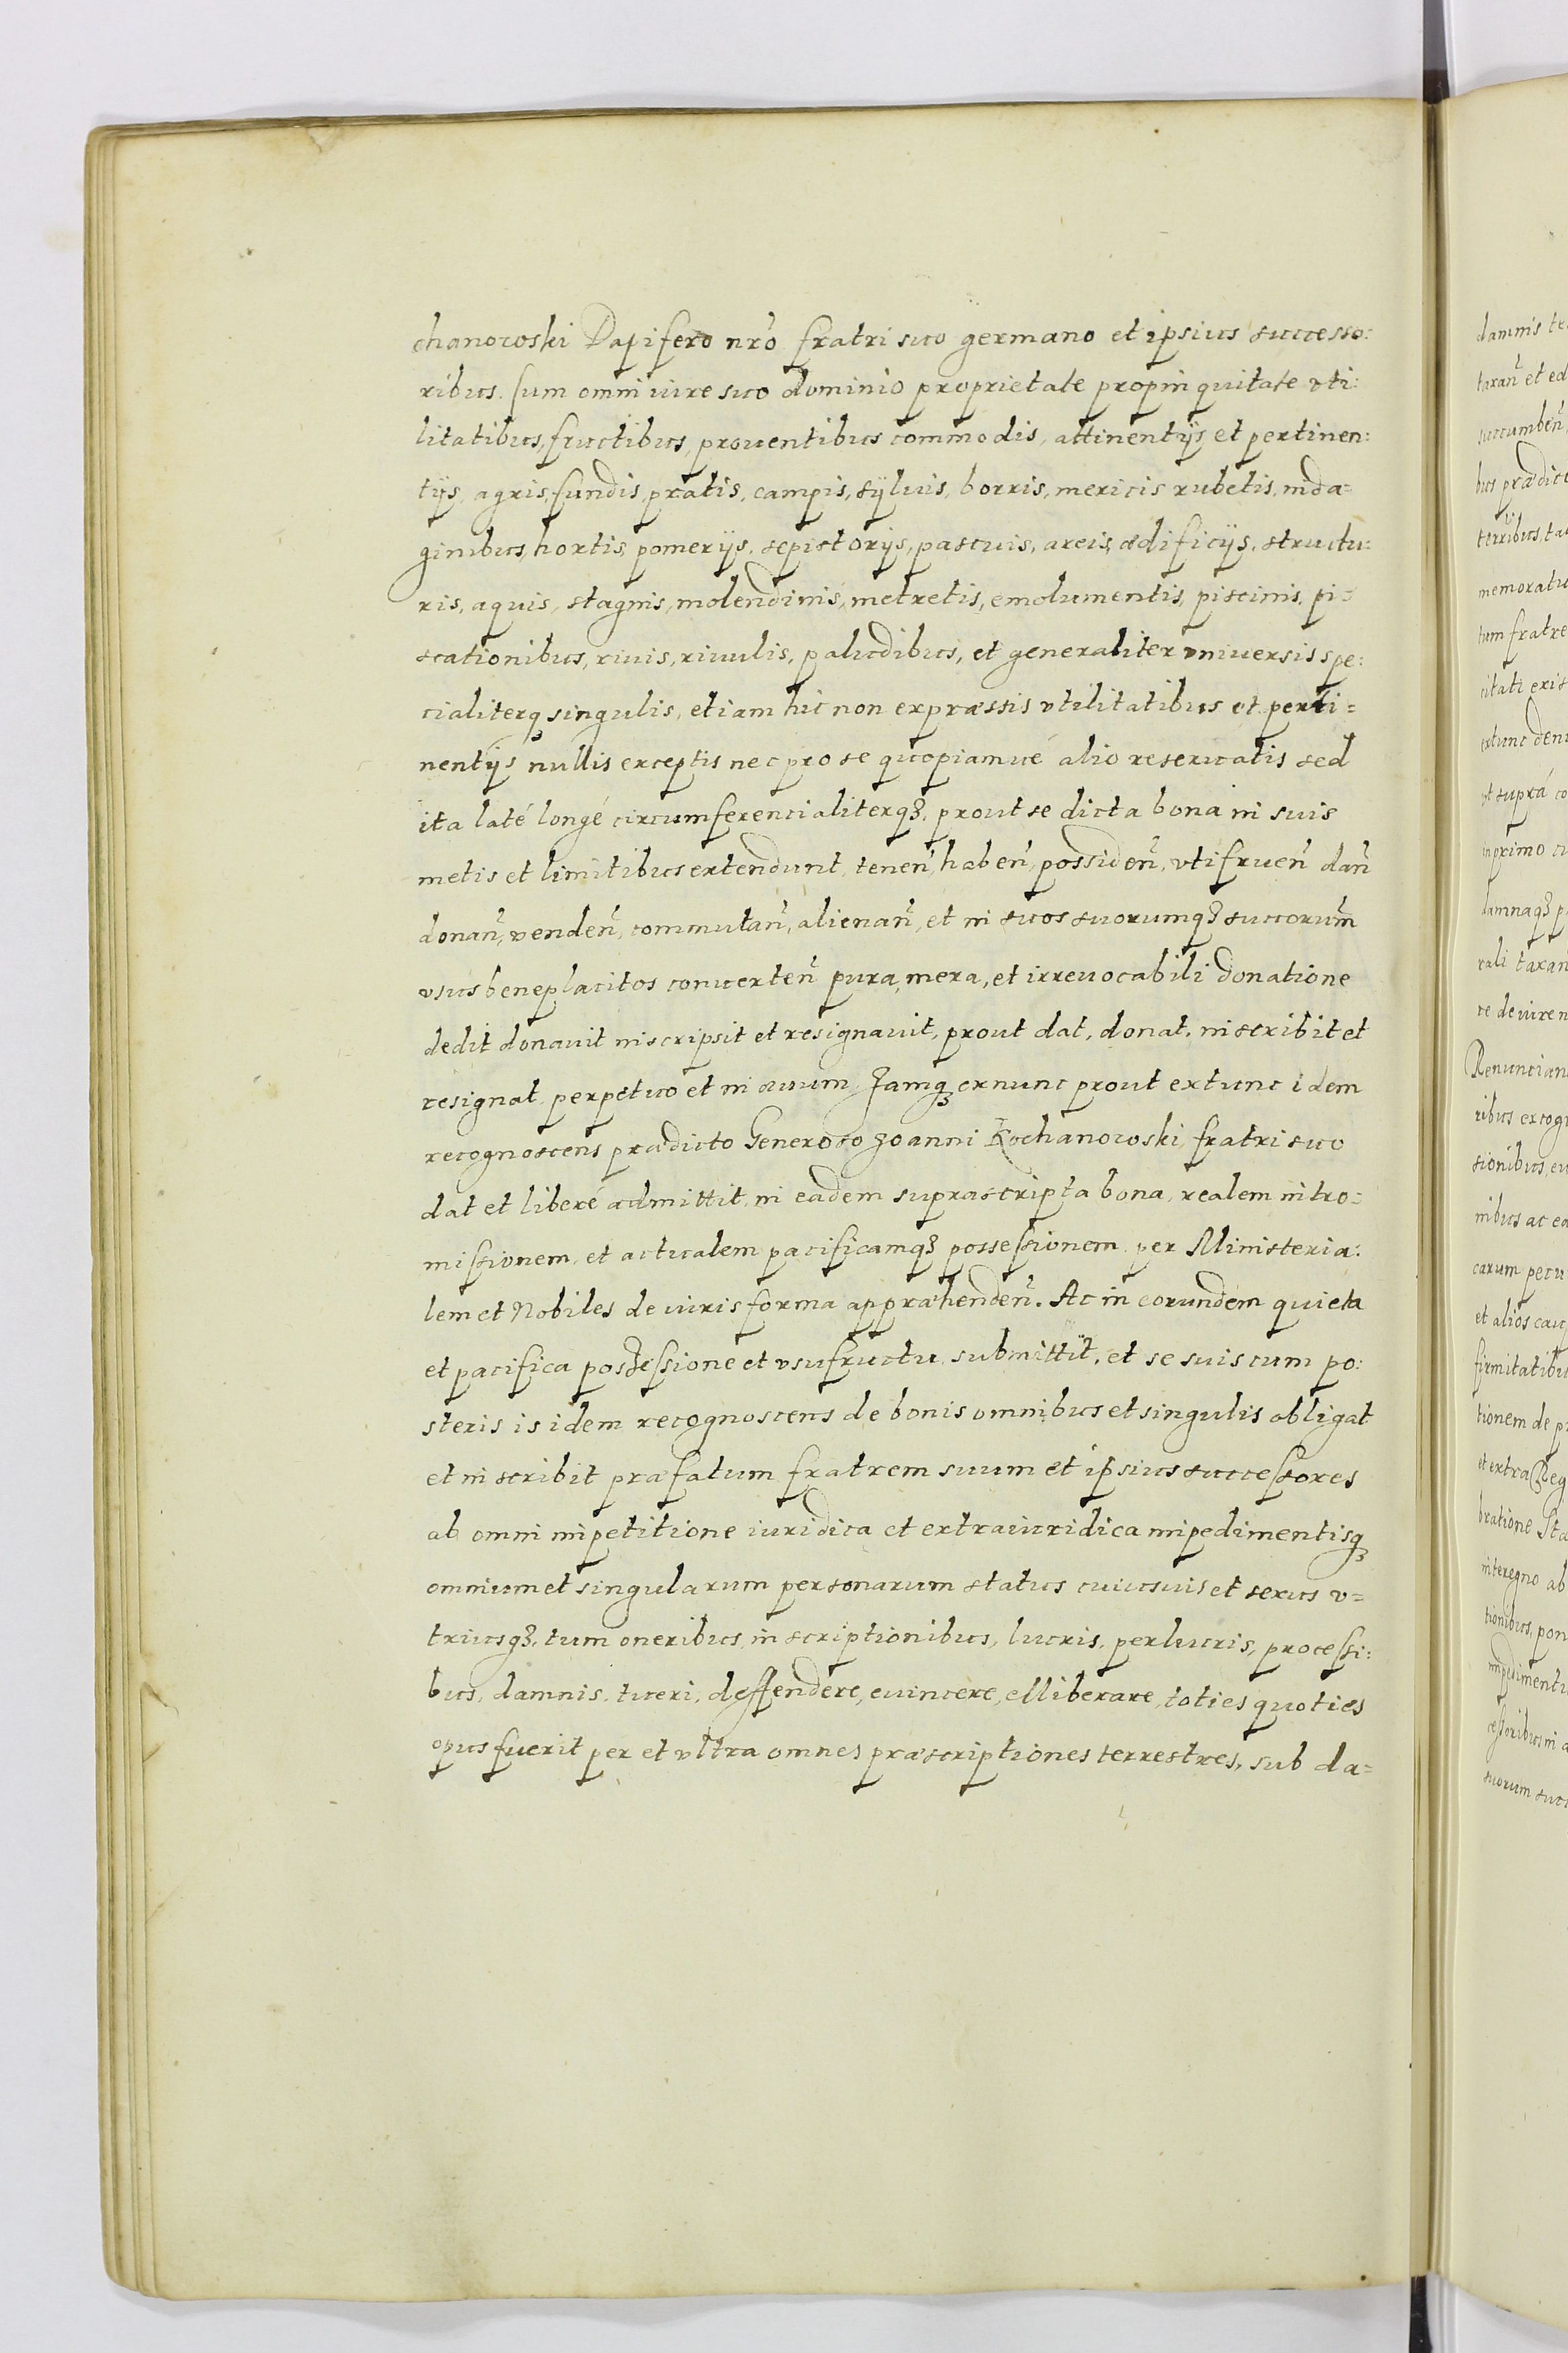 chanowski Dapifero nr̃o fratri suo germano et ipsius successo:
ribus. Cum omni iure suo dominio proprietate propinquitate vti:
litatibus, fructibus, prouentibus commodis, attinentijs et pertinen:
tijs, agris, fundis, pratis, campis, syluis, borris, mericis rubetis, inda=
ginibus, hortis, pomerijs, sepistorijs, pascuis, areis, ædificijs, structu:
ris, aquis, stagnis, molendinis, metretis, emolumentis, piscinis, pi=
scationibus, riuis, riuulis, paludibus, et generaliter vniuersis spe:
cialiterq singulis, etiam hic non expræssis vtilitatibus et perti=
nentijs nullis exceptis nec pro se quopiamué alio reseruatis sed
ita laté longé circumferencialiterqꝫ, prout se dicta bona in suis
metis et limitibus extendunt, tenen̄, haben̄, possiden̄, vtifruen̄ dan̄
donan̄, venden̄, commutan̄, alienan̄, et in suos suorumqꝫ succorum̃
vsus beneplacitos conuerten̄ pura, mera, et irreuocabili donatione
dedit donauit inscripsit et resignauit, prout dat, donat, inscribit et
resignat perpetuo et in æuum, Jamqꝫ exnunc prout extunc idem
recognoscens prædicto Generoso Joanni Kochanowski, fratri suo
dat et liberé admittit, in eadem suprascripta bona, realem intro=
missionem, et actualem pacificamqꝫ possessionem per Ministeria:
lem et Nobiles de iuris forma appræhenden̄. Ac in eorundem quieta
et pacifica possessione et vsufructu submittit, et se suis cum po:
steris is idem recognoscens de bonis omnibus et singulis obligat
et inscribit præfatum fratrem suum et ipsius successores
ab omni impetitione iuridica et extraiuridica impedimentisqꝫ
omnium et singularum personarum status cuiusuis et sexus v=
triusqꝫ, tum oneribus, inscriptionibus, lucris, perlucris, processi:
bus, damnis, tueri, deffendere, euincere, elliberare, toties quoties
opus fuerit per et vltra omnes præscriptiones terrestres, sub da=